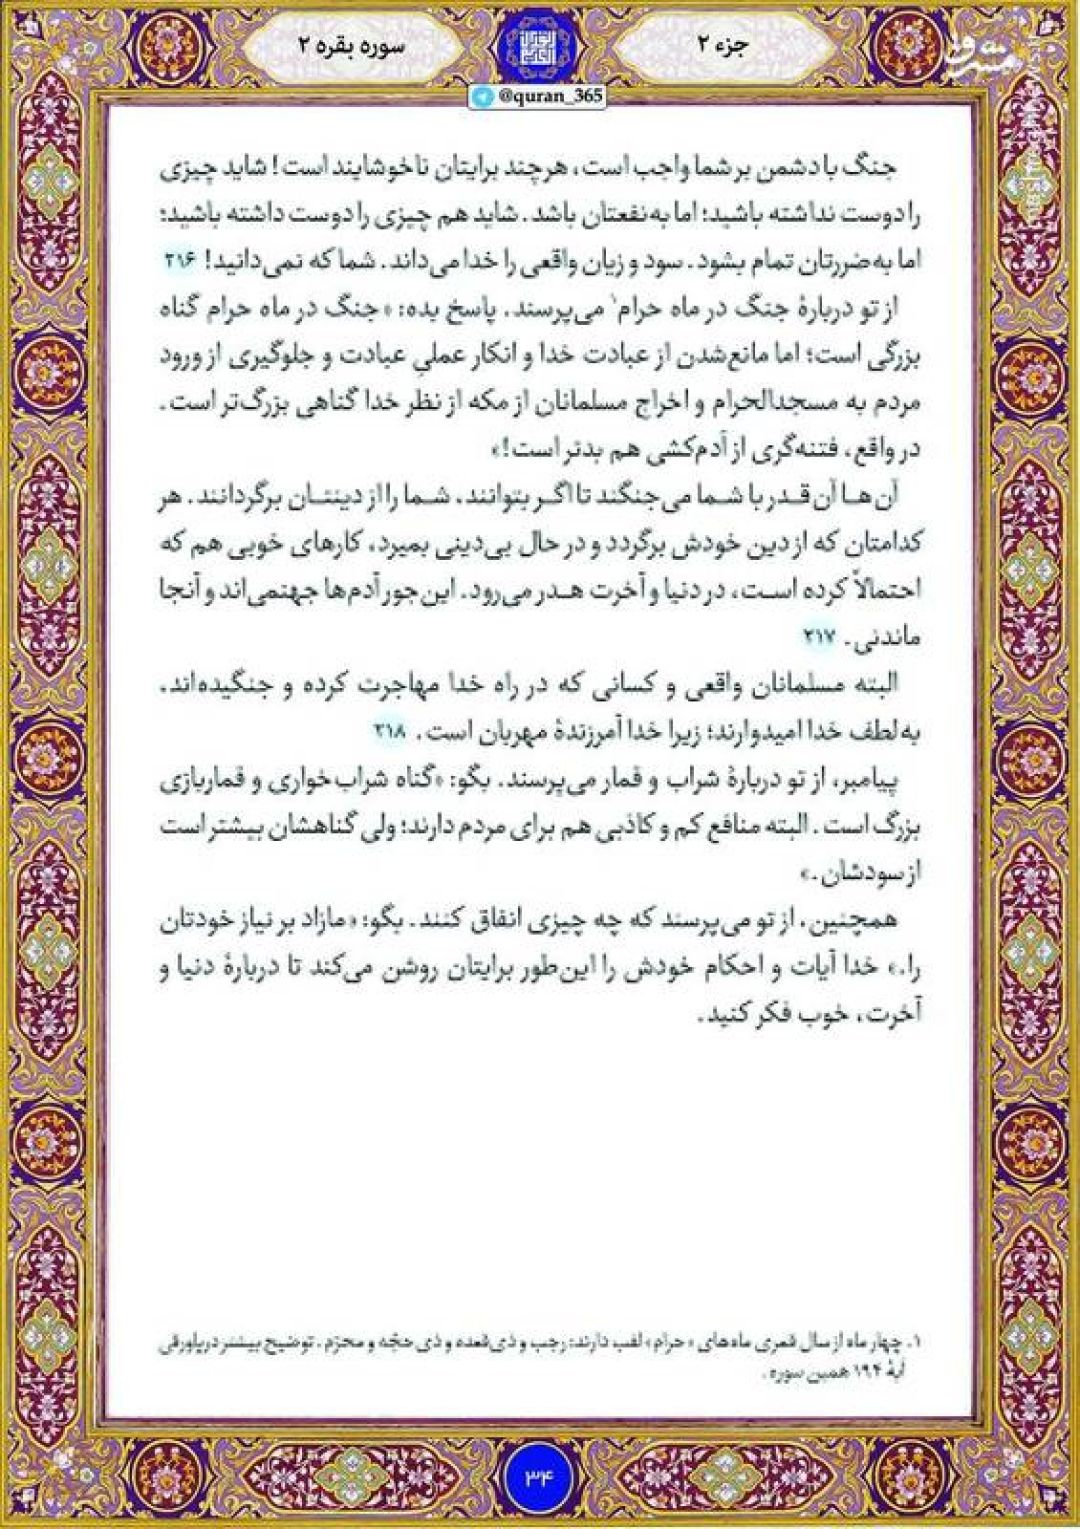 جزء ۲
سوره بقره ۲
@quran_365
مشرق
جنگ با دشمن بر شما واجب است، هرچند برایتان ناخوشایند است! شاید چیزی
را دوست نداشته باشید؛ اما به‌نفعتان باشد. شاید هم چیزی را دوست داشته باشید؛
اما به‌ضررتان تمام بشود. سود و زیان واقعی را خدا می‌داند. شما که نمی‌دانید! ۲۱۶
از تو دربارهٔ جنگ در ماه حرام۱ می‌پرسند. پاسخ بده: «جنگ در ماه حرام گناه
بزرگی است؛ اما مانع‌شدن از عبادت خدا و انکار عملیِ عبادت و جلوگیری از ورود
مردم به مسجدالحرام و اخراج مسلمانان از مکه از نظر خدا گناهی بزرگ‌تر است.
در واقع، فتنه‌گری از آدم‌کشی هم بدتر است!»
آن‌ها آن‌قدر با شما می‌جنگند تا اگر بتوانند، شما را از دینتان برگردانند. هر
کدامتان که از دین خودش برگردد و در حال بی‌دینی بمیرد، کارهای خوبی هم که
احتمالاً کرده است، در دنیا و آخرت هدر می‌رود. این‌جور آدم‌ها جهنمی‌اند و آنجا
ماندنی. ۲۱۷
البته مسلمانان واقعی و کسانی که در راه خدا مهاجرت کرده و جنگیده‌اند،
به لطف خدا امیدوارند؛ زیرا خدا آمرزندهٔ مهربان است. ۲۱۸
پیامبر، از تو دربارهٔ شراب و قمار می‌پرسند. بگو: «گناه شراب‌خواری و قماربازی
بزرگ است. البته منافع کم و کاذبی هم برای مردم دارند؛ ولی گناهشان بیشتر است
از سودشان.»
همچنین، از تو می‌پرسند که چه چیزی انفاق کنند. بگو: «مازاد بر نیاز خودتان
را.» خدا آیات و احکام خودش را این‌طور برایتان روشن می‌کند تا دربارهٔ دنیا و
آخرت، خوب فکر کنید.
۱. چهار ماه از سال قمری ماه‌های «حرام» لقب دارند: رجب و ذی‌قعده و ذی‌حجّه و محرّم. توضیح بیشتر در پاورقی
آیهٔ ۱۹۴ همین سوره.
۳۴